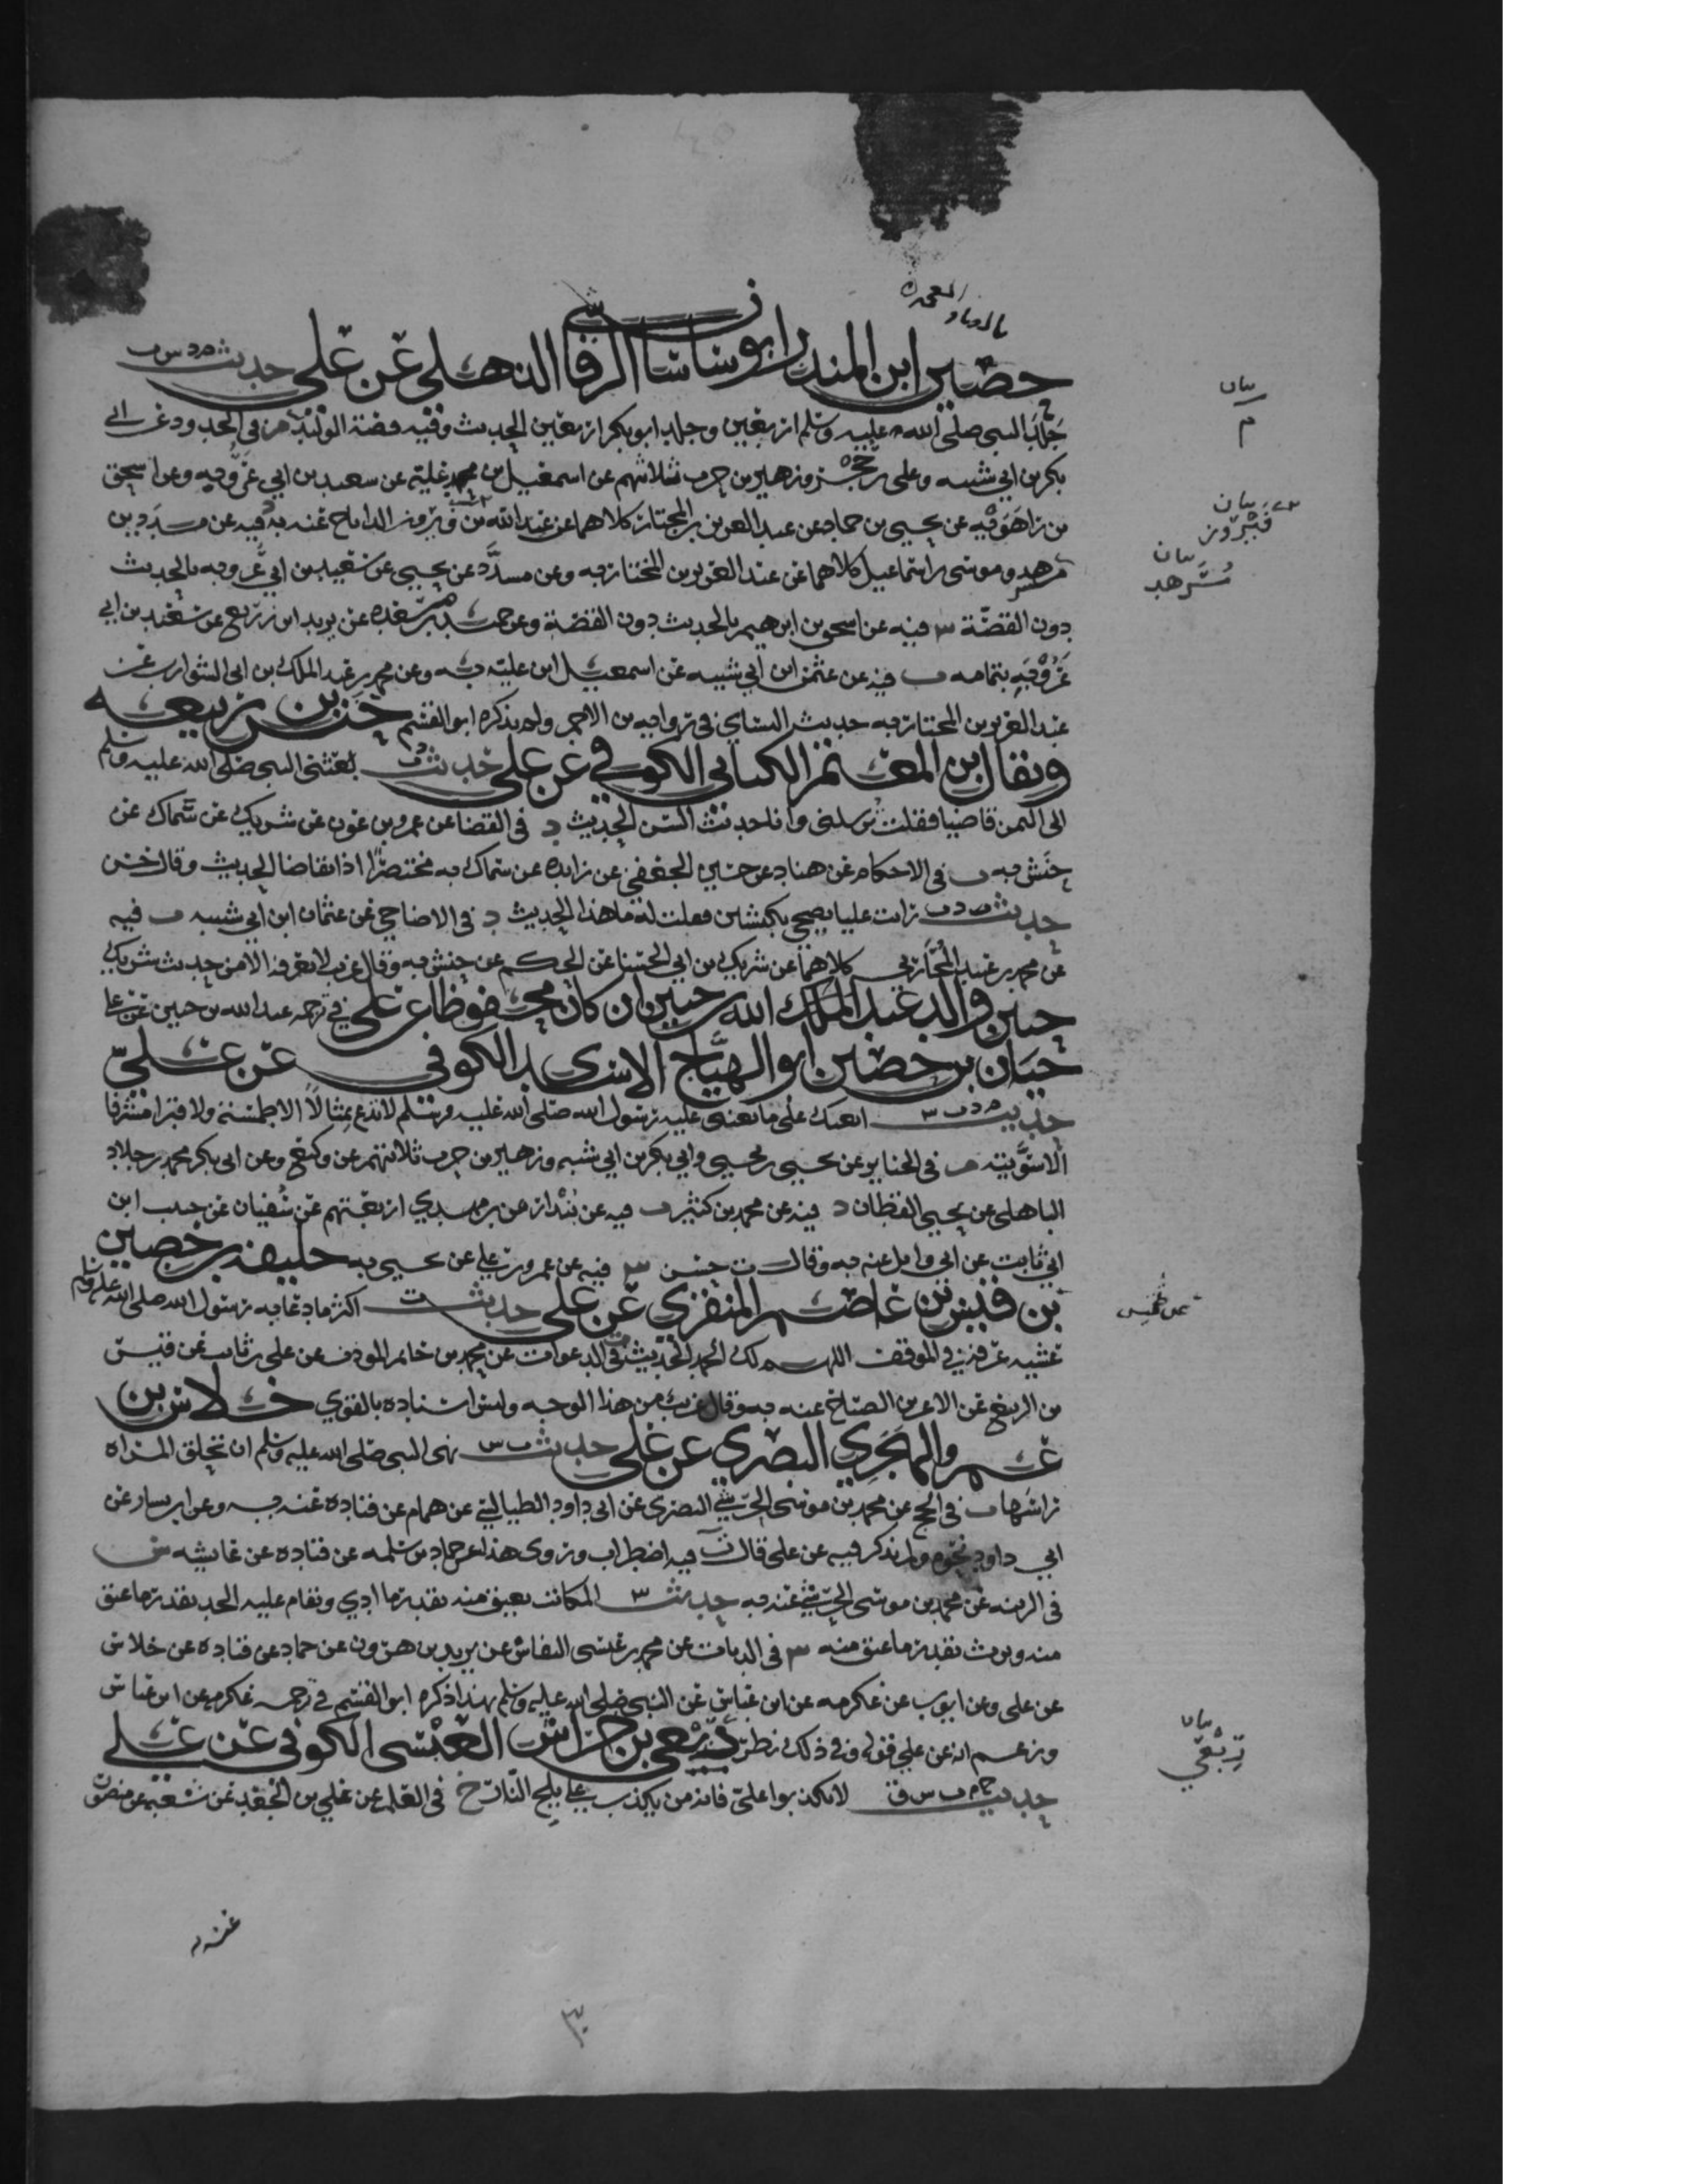 بالضاد المعجمة
حضين ابن المنذر ابو ساسان الرقاشي الذهلي عن علي حديث م د س ق
جلد النبي صلى الله عليه وسلم اربعين وجلد ابو بكر اربعين الحديث وفيه قصة الوليد م في الحدود عن ابي
بكر بن ابي شيبه وعلي بن حجر وزهير بن حرب ثلاثتهم عن اسمعيل بن علية عن سعيد بن ابي عروبه وعن اسحق
بن راهويه عن يحيى بن حماد عن عبد العزيز بن المختار كلاهما عن عبد الله بن فيروز الداناج عنه به د فيه عن مسدد بن
مسرهد وموسى بن اسماعيل كلاهما عن عبد العزيز بن المختار به وعن مسدد عن يحيى عن سعيد بن ابي عروبه بالحديث
دون القصة س فيه عن اسحق بن ابرهيم بالحديث دون القصة وعن حميد بن مسعده عن يزيد ابن زريع عن سعيد بن ابي
عروبه بتمامه ق فيه عن عثمن ابن ابي شيبه عن اسمعيل ابن عليه به وعن محمد بن عبد الملك بن ابي الشوارب عن
عبد العزيز بن المختار به حديث النسائي في رواية بن الاحمر ولم يذكره ابو القسم حنش بن ربيعه
ويقال بن المعتمر الكناني الكوفي عن علي حديث د ت بعثني النبي صلى الله عليه وسلم
الى اليمن قاضيا فقلت ترسلني وانا حديث السن الحديث د في القضا عن عمرو بن عون عن شريك عن سماك عن
حنش به ت في الاحكام عن هناد عن حسين الجعفي عن زايده عن سماك به مختصرا اذا تقاضا الحديث وقال حسن
حديث د ت رايت عليا يضحي بكبشين فقلت له ما هذا الحديث د في الاضاحي عن عثمان ابن ابي شيبه ت فيه
عن محمد بن عبيد المحاربي كلاهما عن شريك بن ابي الحسنا عن الحكم عن حنش به وقال غريب لا نعرفه الا من حديث شريك
حنين والد عبد الله بن حنين ان كان محفوظا عن علي في ترجمه عبد الله بن حنين عن علي
حيان بن حصين ابو الهياج الاسدي الكوفي عن علي
حديث م د ت س ابعثك على ما بعثني عليه رسول الله صلى الله عليه وسلم لا تدع تمثالا الا طمسته ولا قبرا مشرفا
الا سويته م في الجنايز عن يحيى بن يحيى وابي بكر بن ابي شيبه وزهير بن حرب ثلاثتهم عن وكيع وعن ابي بكر محمد بن خلاد
الباهلي عن يحيى القطان د فيه عن محمد بن كثير ت فيه عن بندار عن بن مهدي اربعتهم عن سفيان عن حبيب ابن
ابي ثابت عن ابي وايل عنه به وقال ت حسن س فيه عن عمرو بن علي عن يحيى به خليفه بن حصين
بن قيس بن عاصم المنقري عن علي حديث ت اكثر ما دعا به رسول الله صلى الله عليه وسلم
عشيه عرفه في الموقف اللهم لك الحمد الحديث ت في الدعوات عن محمد بن حاتم المودب عن علي بن ثابت عن قيس
بن الربيع عن الاغر بن الصباح عنه به وقال غريب من هذا الوجه وليس اسناده بالقوي خلاس بن
عمرو الهجري البصري عن علي حديث ت س نهى النبي صلى الله عليه وسلم ان تحلق المراه
راسها ت في الحج عن محمد بن موسى الحرشي البصري عن ابي داود الطيالسي عن همام عن قتاده عنه به وعن ابن بشار عن
ابي داود نحوه ولم يذكر فيه عن علي قال ت فيه اضطراب وروى هذا عن حماد بن سلمه عن قتاده عن عايشه س
في الزينه عن محمد بن موسى الحرشي عنه به حديث س المكاتب يعتق منه بقدر ما ادي ويقام عليه الحد بقدر ما عتق
منه ويورث بقدر ما عتق منه س في الديات عن محمد بن عيسى النقاش عن يزيد بن هرون عن حماد عن قتاده عن خلاس
عن علي وعن ايوب عن عكرمه عن ابن عباس عن النبي صلى الله عليه وسلم بهذا ذكره ابو القسم في ترجمه عكرمه عن ابن عباس
وزعم انه عن علي قوله وفي ذلك نظر ربعي بن حراش العبسي الكوفي عن علي
حديث خ م ت س ق لا تكذبوا علي فانه من يكذب علي يلج النار خ في العلم عن علي بن الجعد عن شعبه عن منصور
عنه
بيان
م
بيان
فيروز
بيان
مسرهد
بيان
ربعي